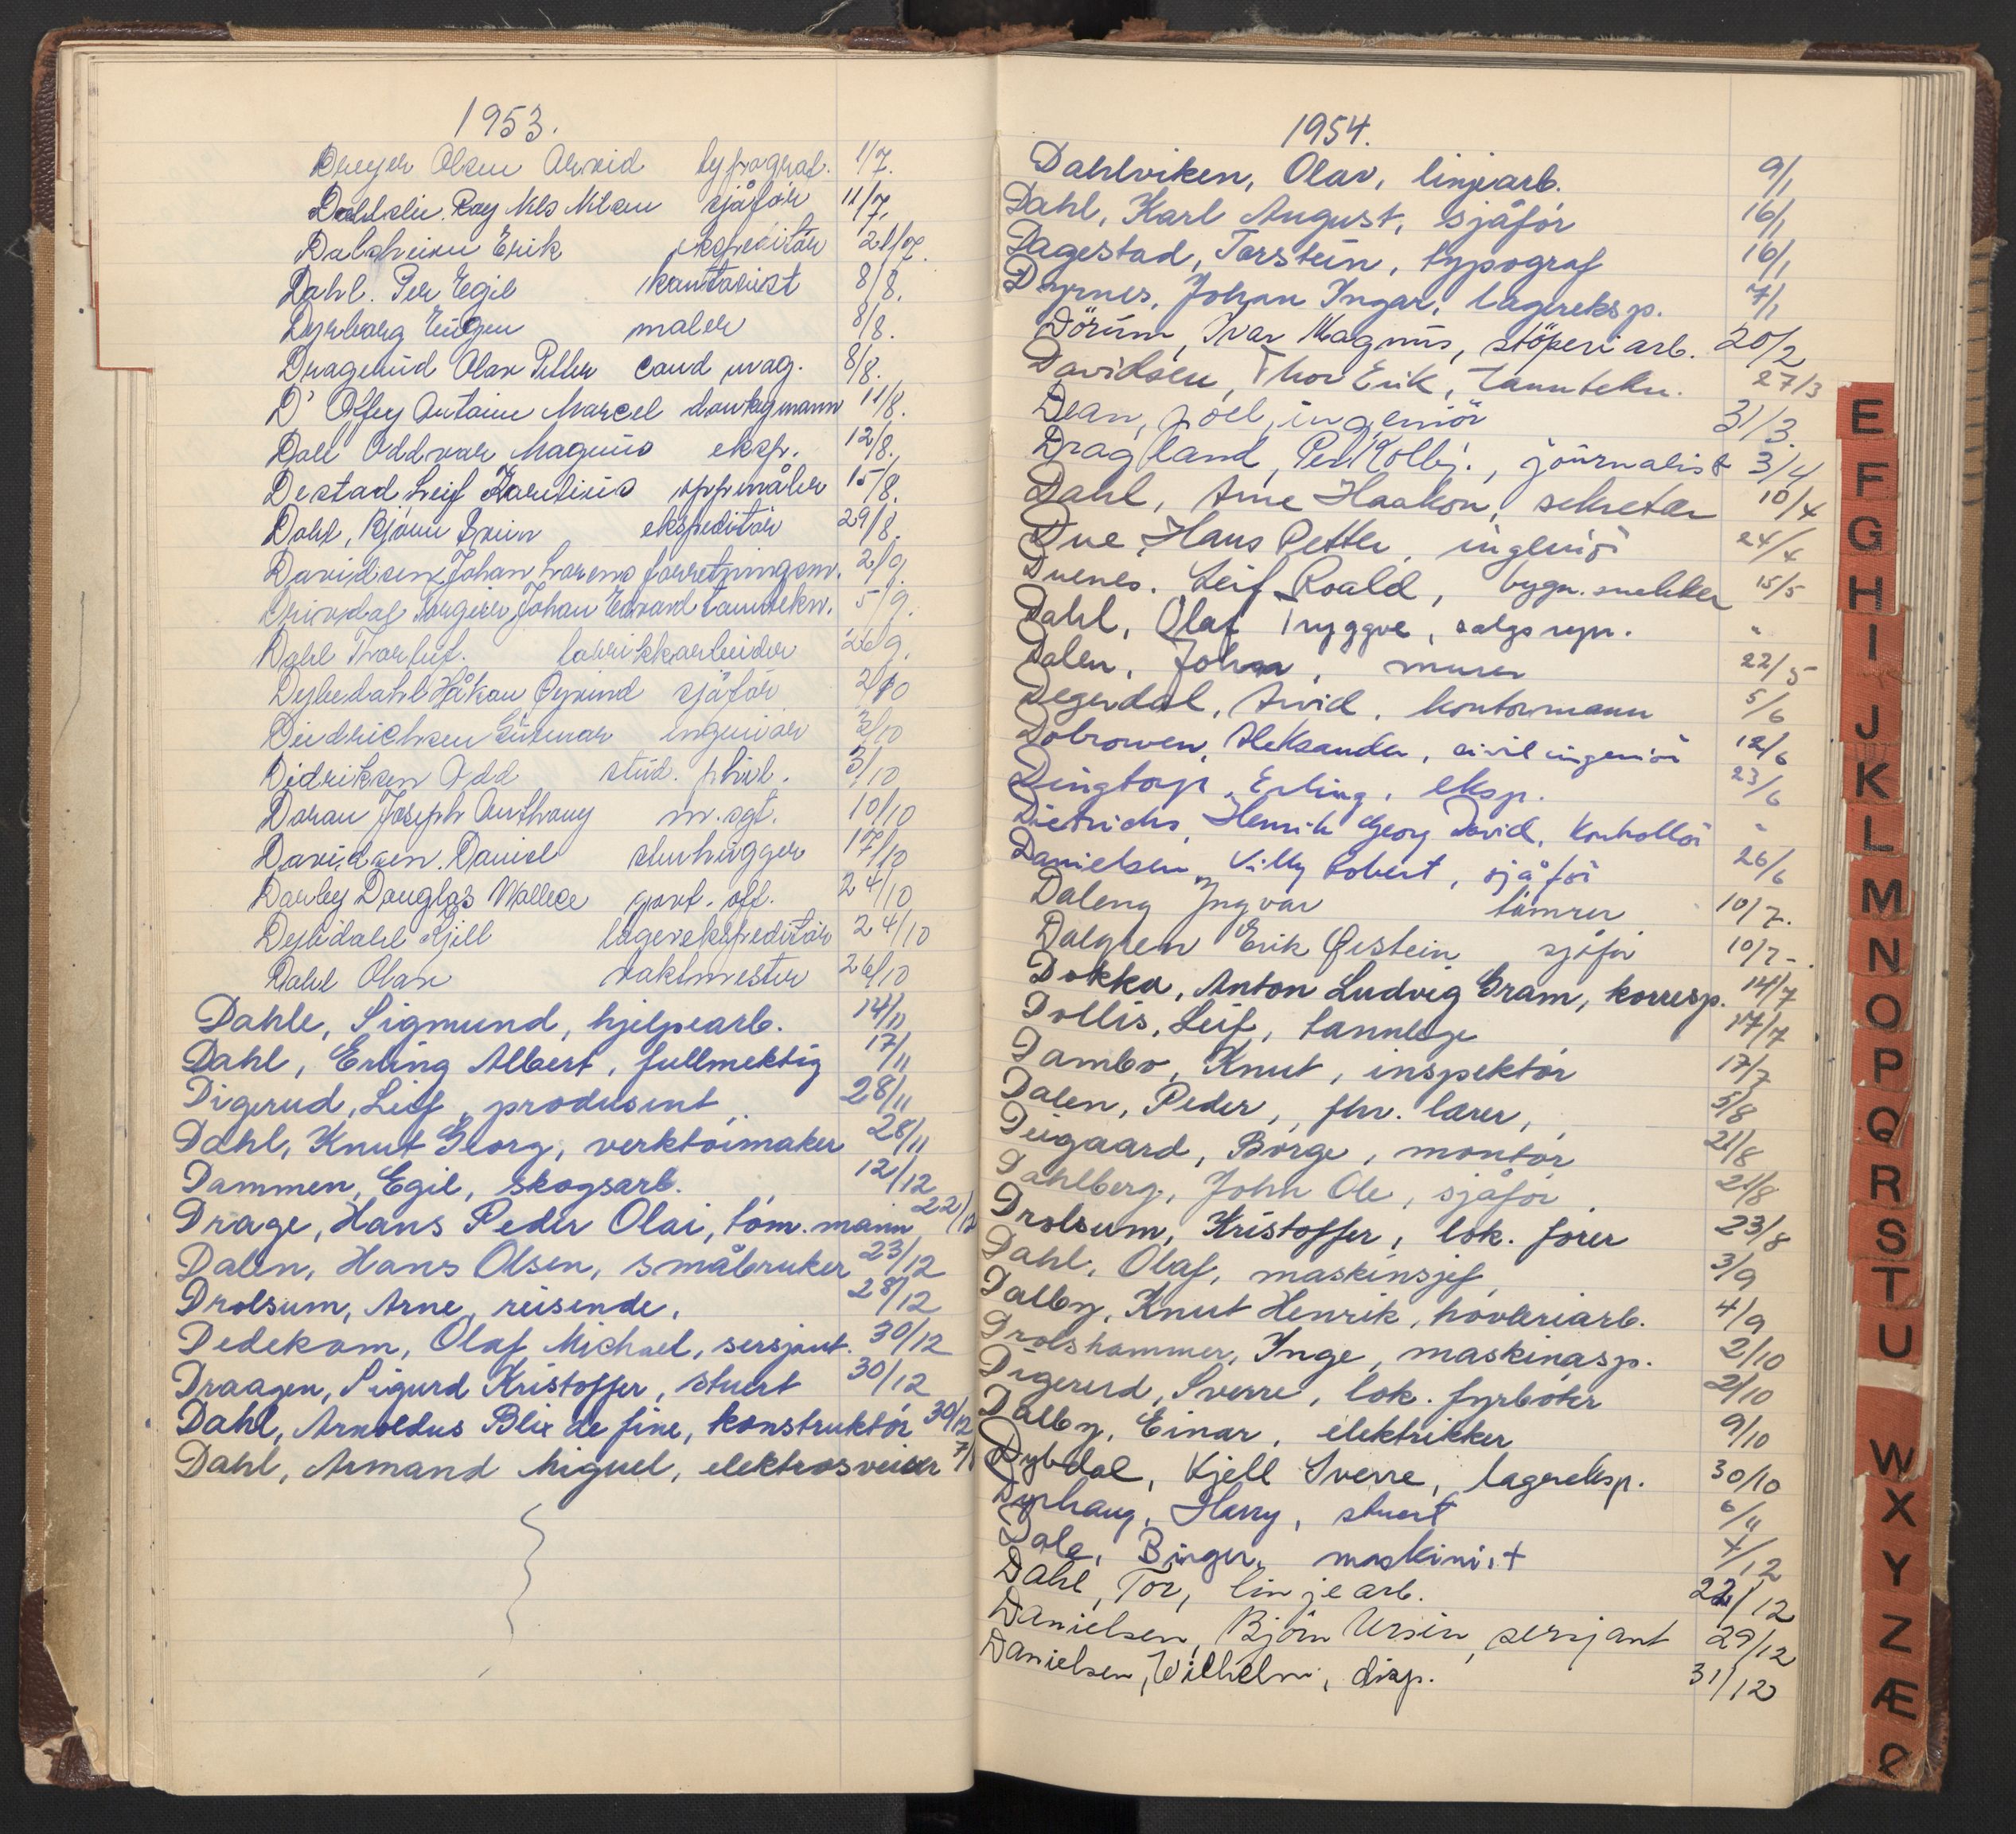 1953.
Dreyer Olsen Arvid typograf. 1/7.
Roy Nils Nilsen sjåfør 11/7.
Erik ekspeditør 21/07.
Dahl. Per Egil kontorist 8/8.
Dyrborg Eugen maler 8/8.
Dragerud Olav Petter cand mag. 8/8.
D' Antoine Marcel 11/8.
Dall Oddvar Magnus eksp. 12/8.
Destad Leif Karelius oppmåler 15/8.
Dahl, Bjørn ekspeditør 29/8.
Davidsen Johan Lorens forretningsm. 2/9.
Drivdal Torgeir Johan Edvard tanntekn. 5/9.
Dahl Thorleif. fabrikkarbeider 26 9.
Dybedahl Håkon Øyvind sjåfør 2/10
Diedrichsen Gunnar ingeniør 3/10
Didriksen Odd stud. phil. 3/10
Doran Joseph Anthony m. sgt. 10/10
Davidsen. Daniel stenhugger 17/10
Darley Douglas Wallece govt. off. 24/10
Dybdahl Kjell lagerekspeditør 24/10
Dahl Olav vaktmester 26/10
Dahle, Sigmund, hjelpearb. 14/11
Dahl, Erling Albert, fullmektig 17/11
Digerud, Leif, produsent, 28/11
Dahl, Knut Georg, verktøimaker 28/11
Dammen, Egil, skogsarb. 12/12
Drage, Hans Peder Olai, tøm. mann 22/12
Dalen, Hans Olsen, småbruker 23/12
Drolsum, Arne, reisende, 28/12
Dedekam, Olaf Michael, sersjant. 30/12
Draagen, Sigurd Kristoffer, stuert 30/12
Dahl, Arnoldus Blix de fine, konstruktør 30/12
Dahl, Armand Miguel, elektrosveiser 7/
1954.
Dahlviken, Olav, linjearb. 9/1
Dahl, Karl August, sjåfør 16/1
Dagestad, Torstein, typograf 16/1
Dyrnes, Johan Ingar, lagereksp. 7/1
Dörum, Ivar Magnus, støperiarb. 20/2
Davidsen, Thor Erik, tanntekn. 27/3
Dean, Joel, ingeniör 31/3.
Dragland, Per Kolbj., journalist 3/4
Dahl, Arne Haakon, sekretær 10/4
Due, Hans Petter, ingeniör 24/4
Duenes. Leif Roald, bygn. snekker 15/5
Dahl, Olaf Tryggve, salgsrepr. "
Dalen, Johan, murer 22/5
Degerdal, Arvid, kontormann 5/6
Dobrowen, Aleksander, sivilingeniör 12/6
Dingtorp, Erling, eksp. 23/6
Dietrichs, Henrik Georg David, kontrollör "
Danielsen, Willy Robert, sjåför 26/6
Daleng Ingvar tømrer 10/7.
Dalgren Erik Øistein sjåfør 10/7-.
Dokka, Anton Ludvig Gram, korresp. 14/7
Dollis, Leif, tannlege 17/7
Dambo, Knut, inspektør 17/7
Dalen, Peder, fhv. lærer, 5/8
Deigaard, Børge, montør 21/8
Dahlberg, John Ole, sjåfør 21/8
Drolsum, Kristoffer, lok. fører 23/8
Dahl, Olaf, maskinsjef 3/9
Dalby, Knut Henrik, høvleriarb. 4/9
Drolshammer, Inge, maskinasp. 2/10
Digerud, Sverre, lok. fyrbøter 2/10
Dalby, Einar, elektrikker 9/10
Dybdal, Kjell Sverre, lagereksp. 30/10
Dyrhaug, Harry, stuert 6/11
Dale, Birger, maskinist 7/12
Dahl, Tor, linjearb. 22/12
Danielsen, Björn Ursin, sersjant 29/12
Danielsen, Wilhelm, disp. 31/12
E
F
G
H
I
J
K
L
M
N
O
P
Q
R
S
T
U
W
X
Y
Z
Æ
Ø